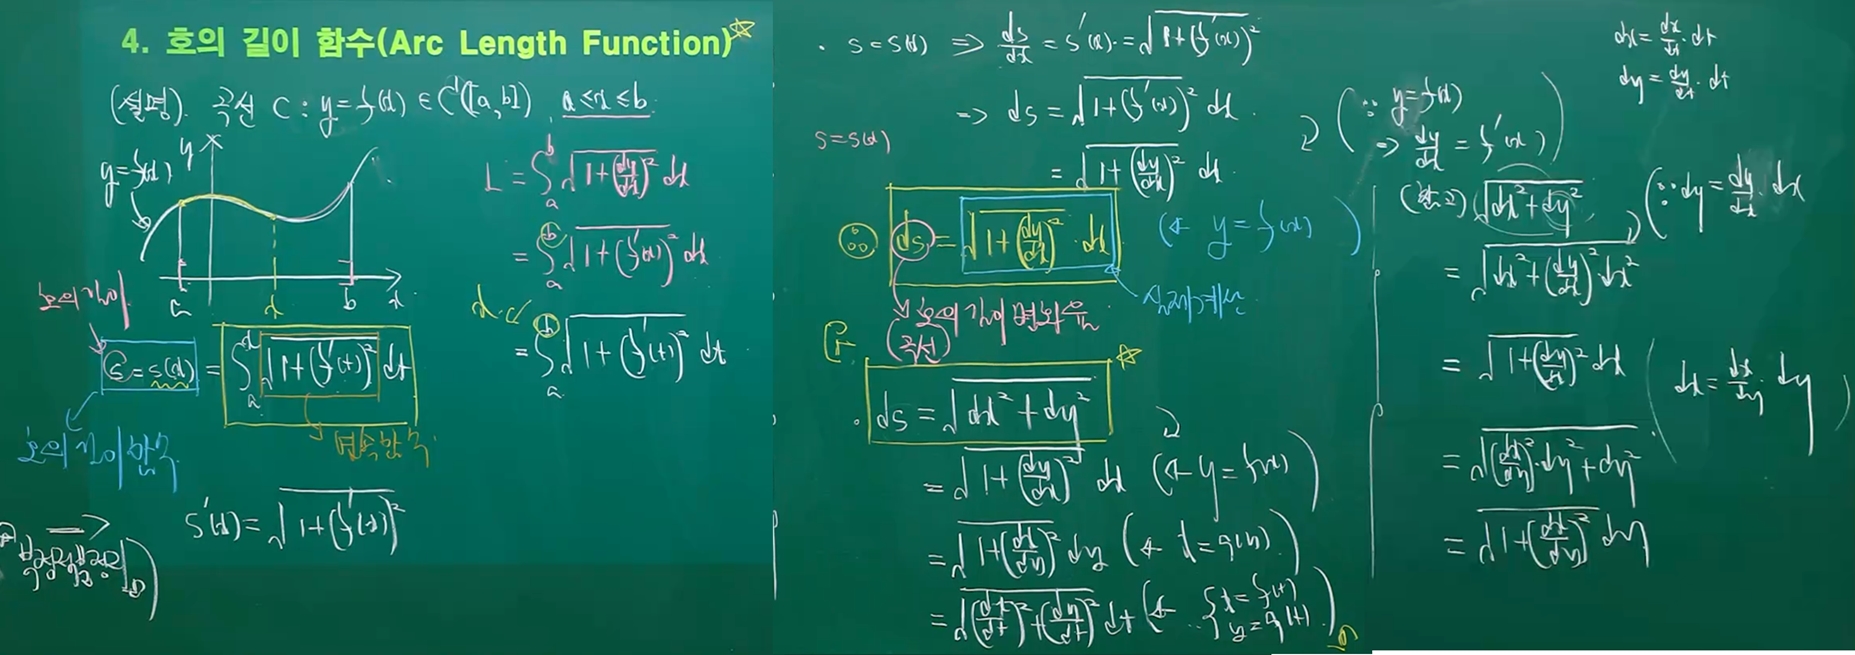 4. 호의 길이 함수(Arc Length Function)
(설명). 곡선 C : y = f(x) ∈ C¹([a, b]) a ≤ x ≤ b
y = f(x)
y
a
x
b
x
L = ∫ₐᵇ √(1 + (dy/dx)²) dx
= ∫ₐᵇ √(1 + (f'(x))²) dx
= ∫ₐᵇ √(1 + (f'(t))²) dt
호의 길이
s = s(x) = ∫ₐˣ √(1 + (f'(t))²) dt
호의 길이 함수
연속함수
s'(x) = √(1 + (f'(x))²)
· s = s(x) ⇒ ds/dx = s'(x) = √(1 + (f'(x))²)
⇒ ds = √(1 + (f'(x))²) dx
s = s(x)
= √(1 + (dy/dx)²) dx
ds = √(1 + (dy/dx)²) · dx (← y = f(x))
호의 길이 변화율
(곡선)
· ds = √(dx² + dy²)
= √(1 + (dy/dx)²) dx (← y = f(x))
= √(1 + (dx/dy)²) dy (← x = g(y))
= √((dx/dt)² + (dy/dt)²) dt (← { x = f(t) y = g(t) )
dx = dx/dt · dt
dy = dy/dt · dt
(∵ y = f(x)
⇒ dy/dx = f'(x))
(참고) √(dx² + dy²) (∵ dy = dy/dx · dx
= √(dx² + (dy/dx)² dx²)
= √(1 + (dy/dx)²) dx
(dx = dx/dy · dy)
= √((dx/dy)² · dy² + dy²)
= √(1 + (dx/dy)²) dy